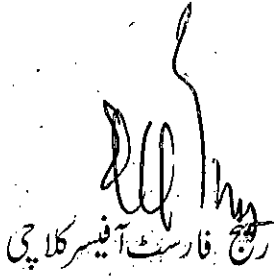 رینج فارسٹ آفیسر کلاچی